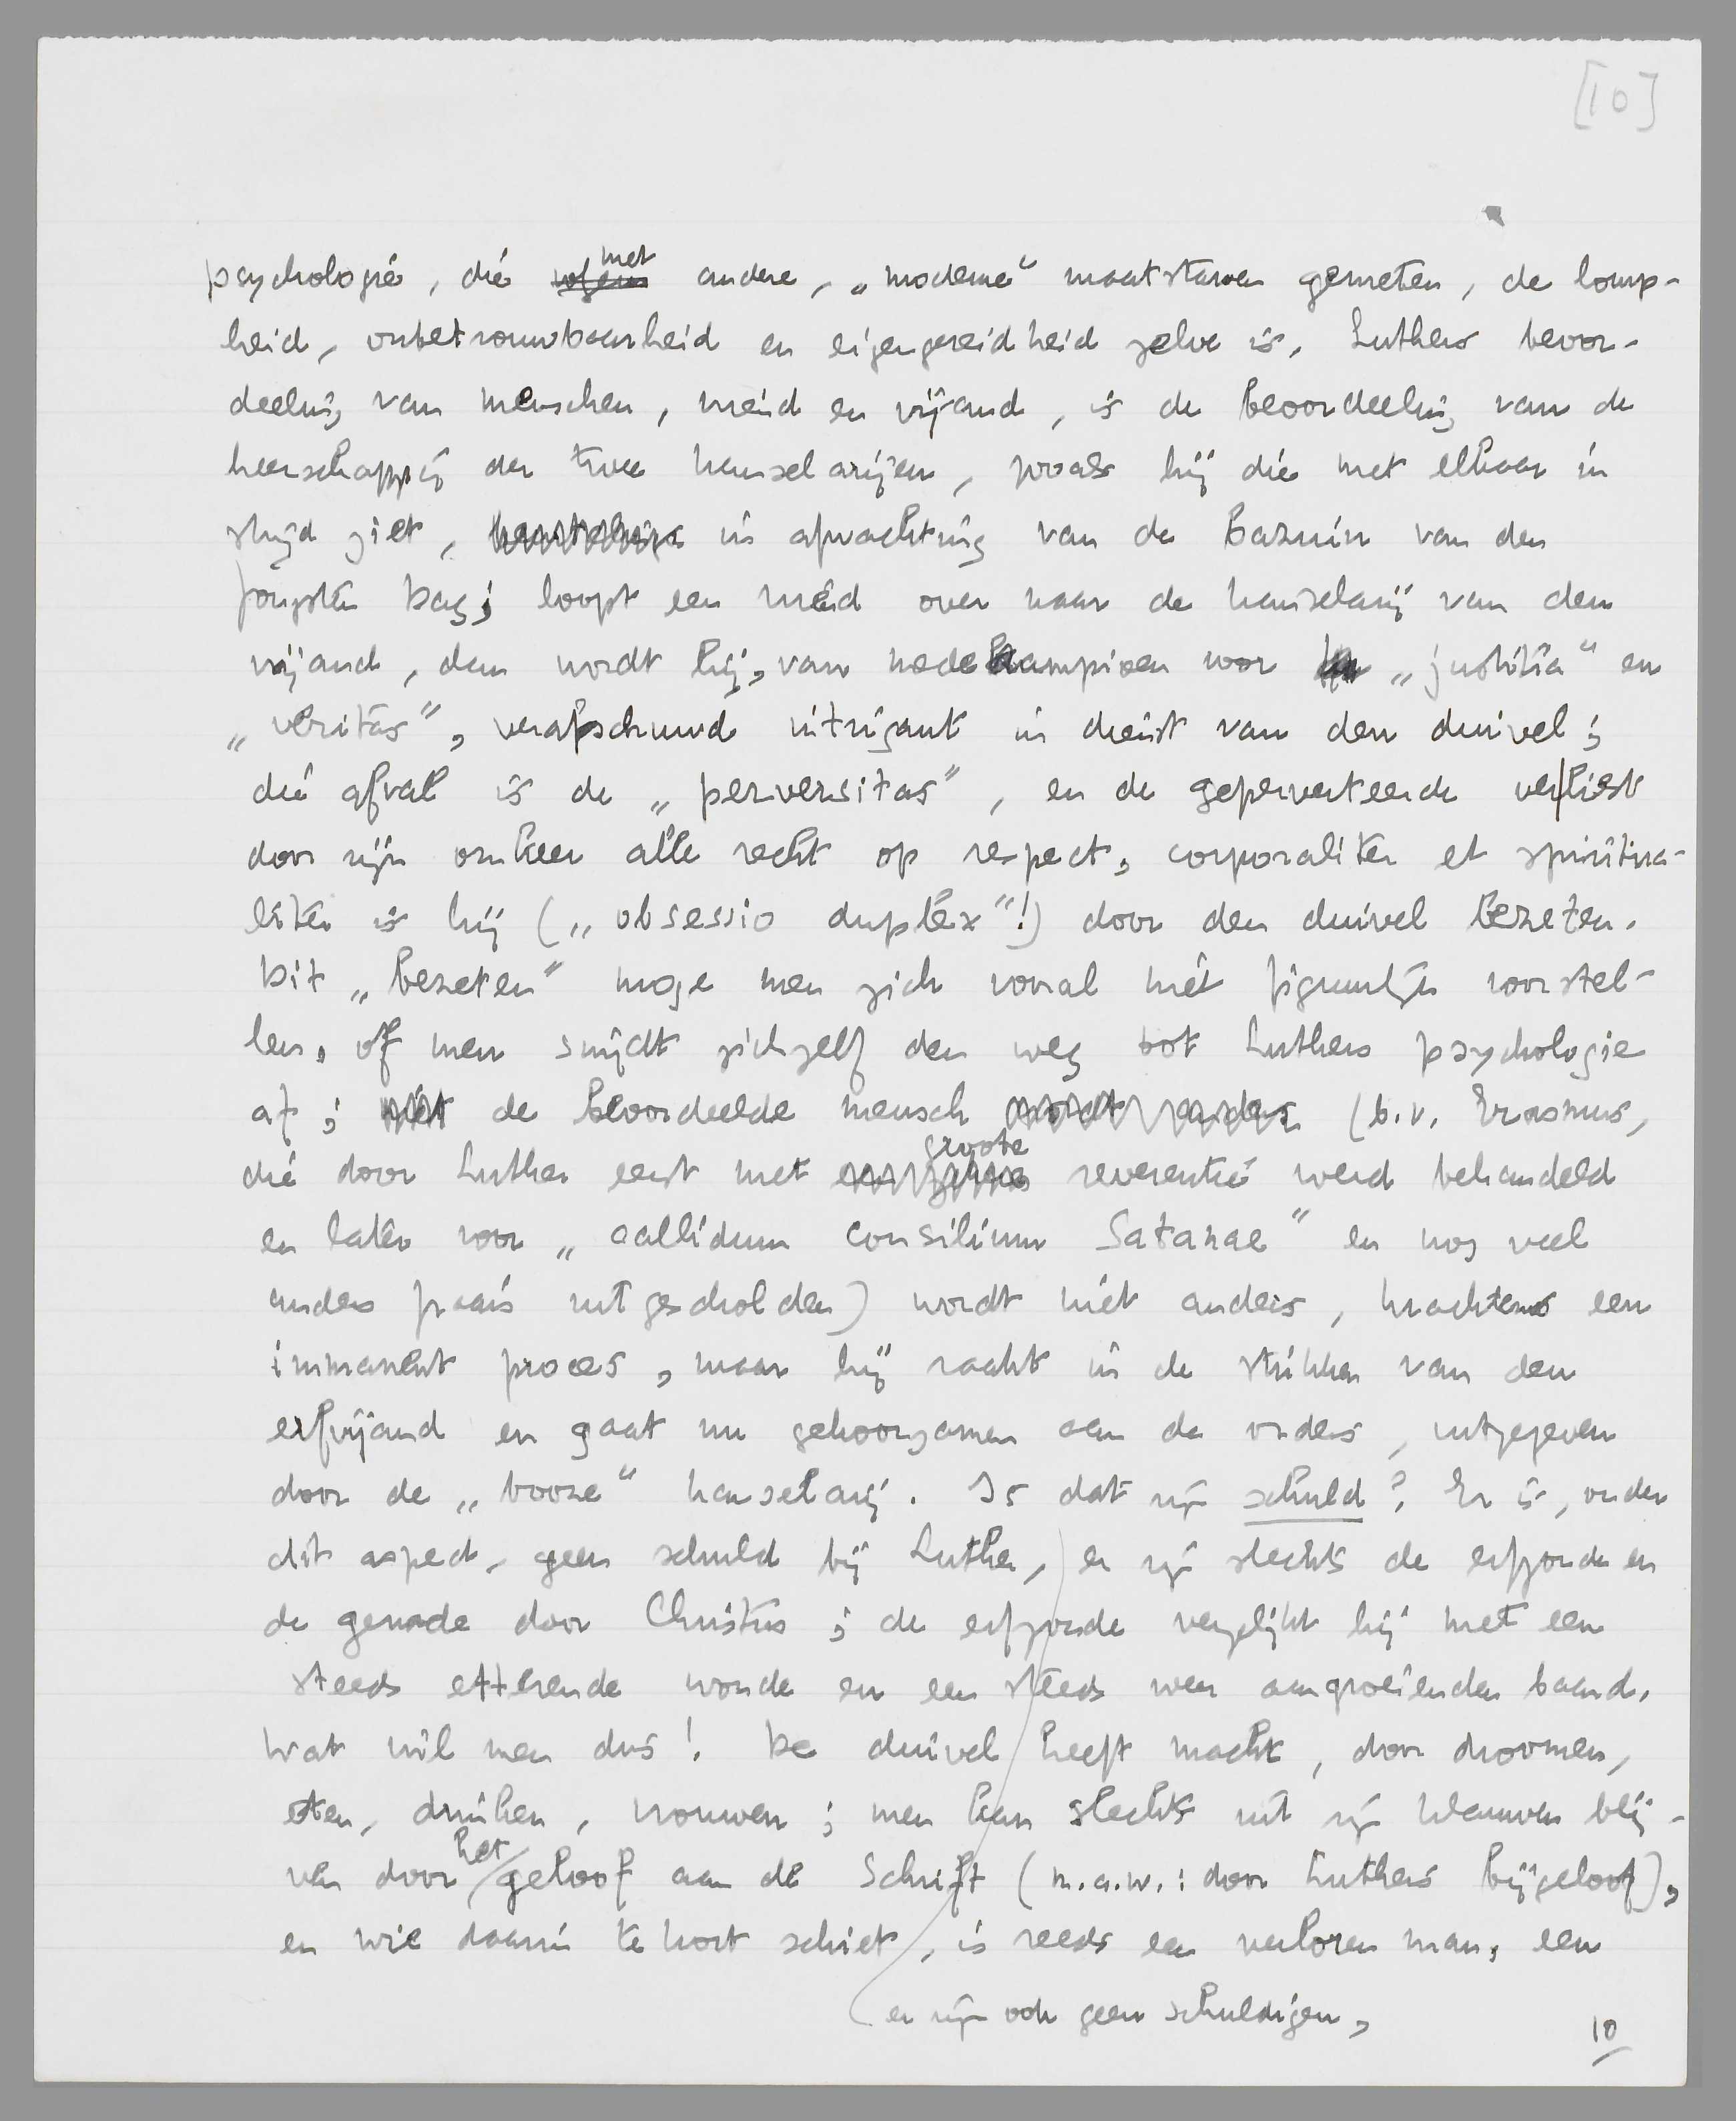 [10]
psychologie, die met andere, „moderne“ maatstaven gemeten, de lomp-
heid, onbetrouwbaarheid en eigengereidheid zelve is. Luthers beoor-
deeling van menschen, vriend en vijand, is de beoordeeling van de
heerschappij der twee kanselarijen, zooals hij die met elkaar in
strijd ziet, in afwachting van de Bazuin van den
jongsten Dag; loopt een vriend over naar de kanselarij van den
vijand, dan wordt hij, van medekampioen voor „justitia“ en
„veritas“, verafschuwd intrigant in dienst van den duivel;
die afval is de „perversitas“, en de geperverteerde verliest
door zijn omkeer alle recht op respect, corporaliter et spiritua-
liter is hij („obsessio duplex“!) door den duivel bezeten.
Dit „bezeten“ moge men zich vooral niet figuurlijk voorstel-
len, of men snijdt zichzelf den weg tot Luthers psychologie
af; de beoordeelde mensch (b.v. Erasmus,
die door Luther eerst met groote reverentie werd behandeld
en later voor „callidum consilium Satanae“ en nog veel
anders fraais uitgescholden) wordt niet anders, krachtens een
immanent proces, maar hij raakt in de strikken van den
erfvijand en gaat nu gehoorzamen aan de orders, uitgegeven
door de „booze“ kanselarij. Is dat zijn schuld? Er is, onder
dit aspect, geen schuld bij Luther, er zijn slechts de erfzonde en
de genade door Christus; de erfzonde vergelijkt hij met een
steeds etterende wonde en een steeds weer aangroeienden baard.
Wat wil men dus! De duivel heeft macht, door droomen,
eten, drinken, vrouwen; men kan slechts uit zijn klauwen blij-
ven door het geloof aan de Schrift (m.a.w.: door Luthers bijgeloof),
en wie daarin te kort schiet, is reeds een verloren man, een
er zijn ook geen schuldigen,
10